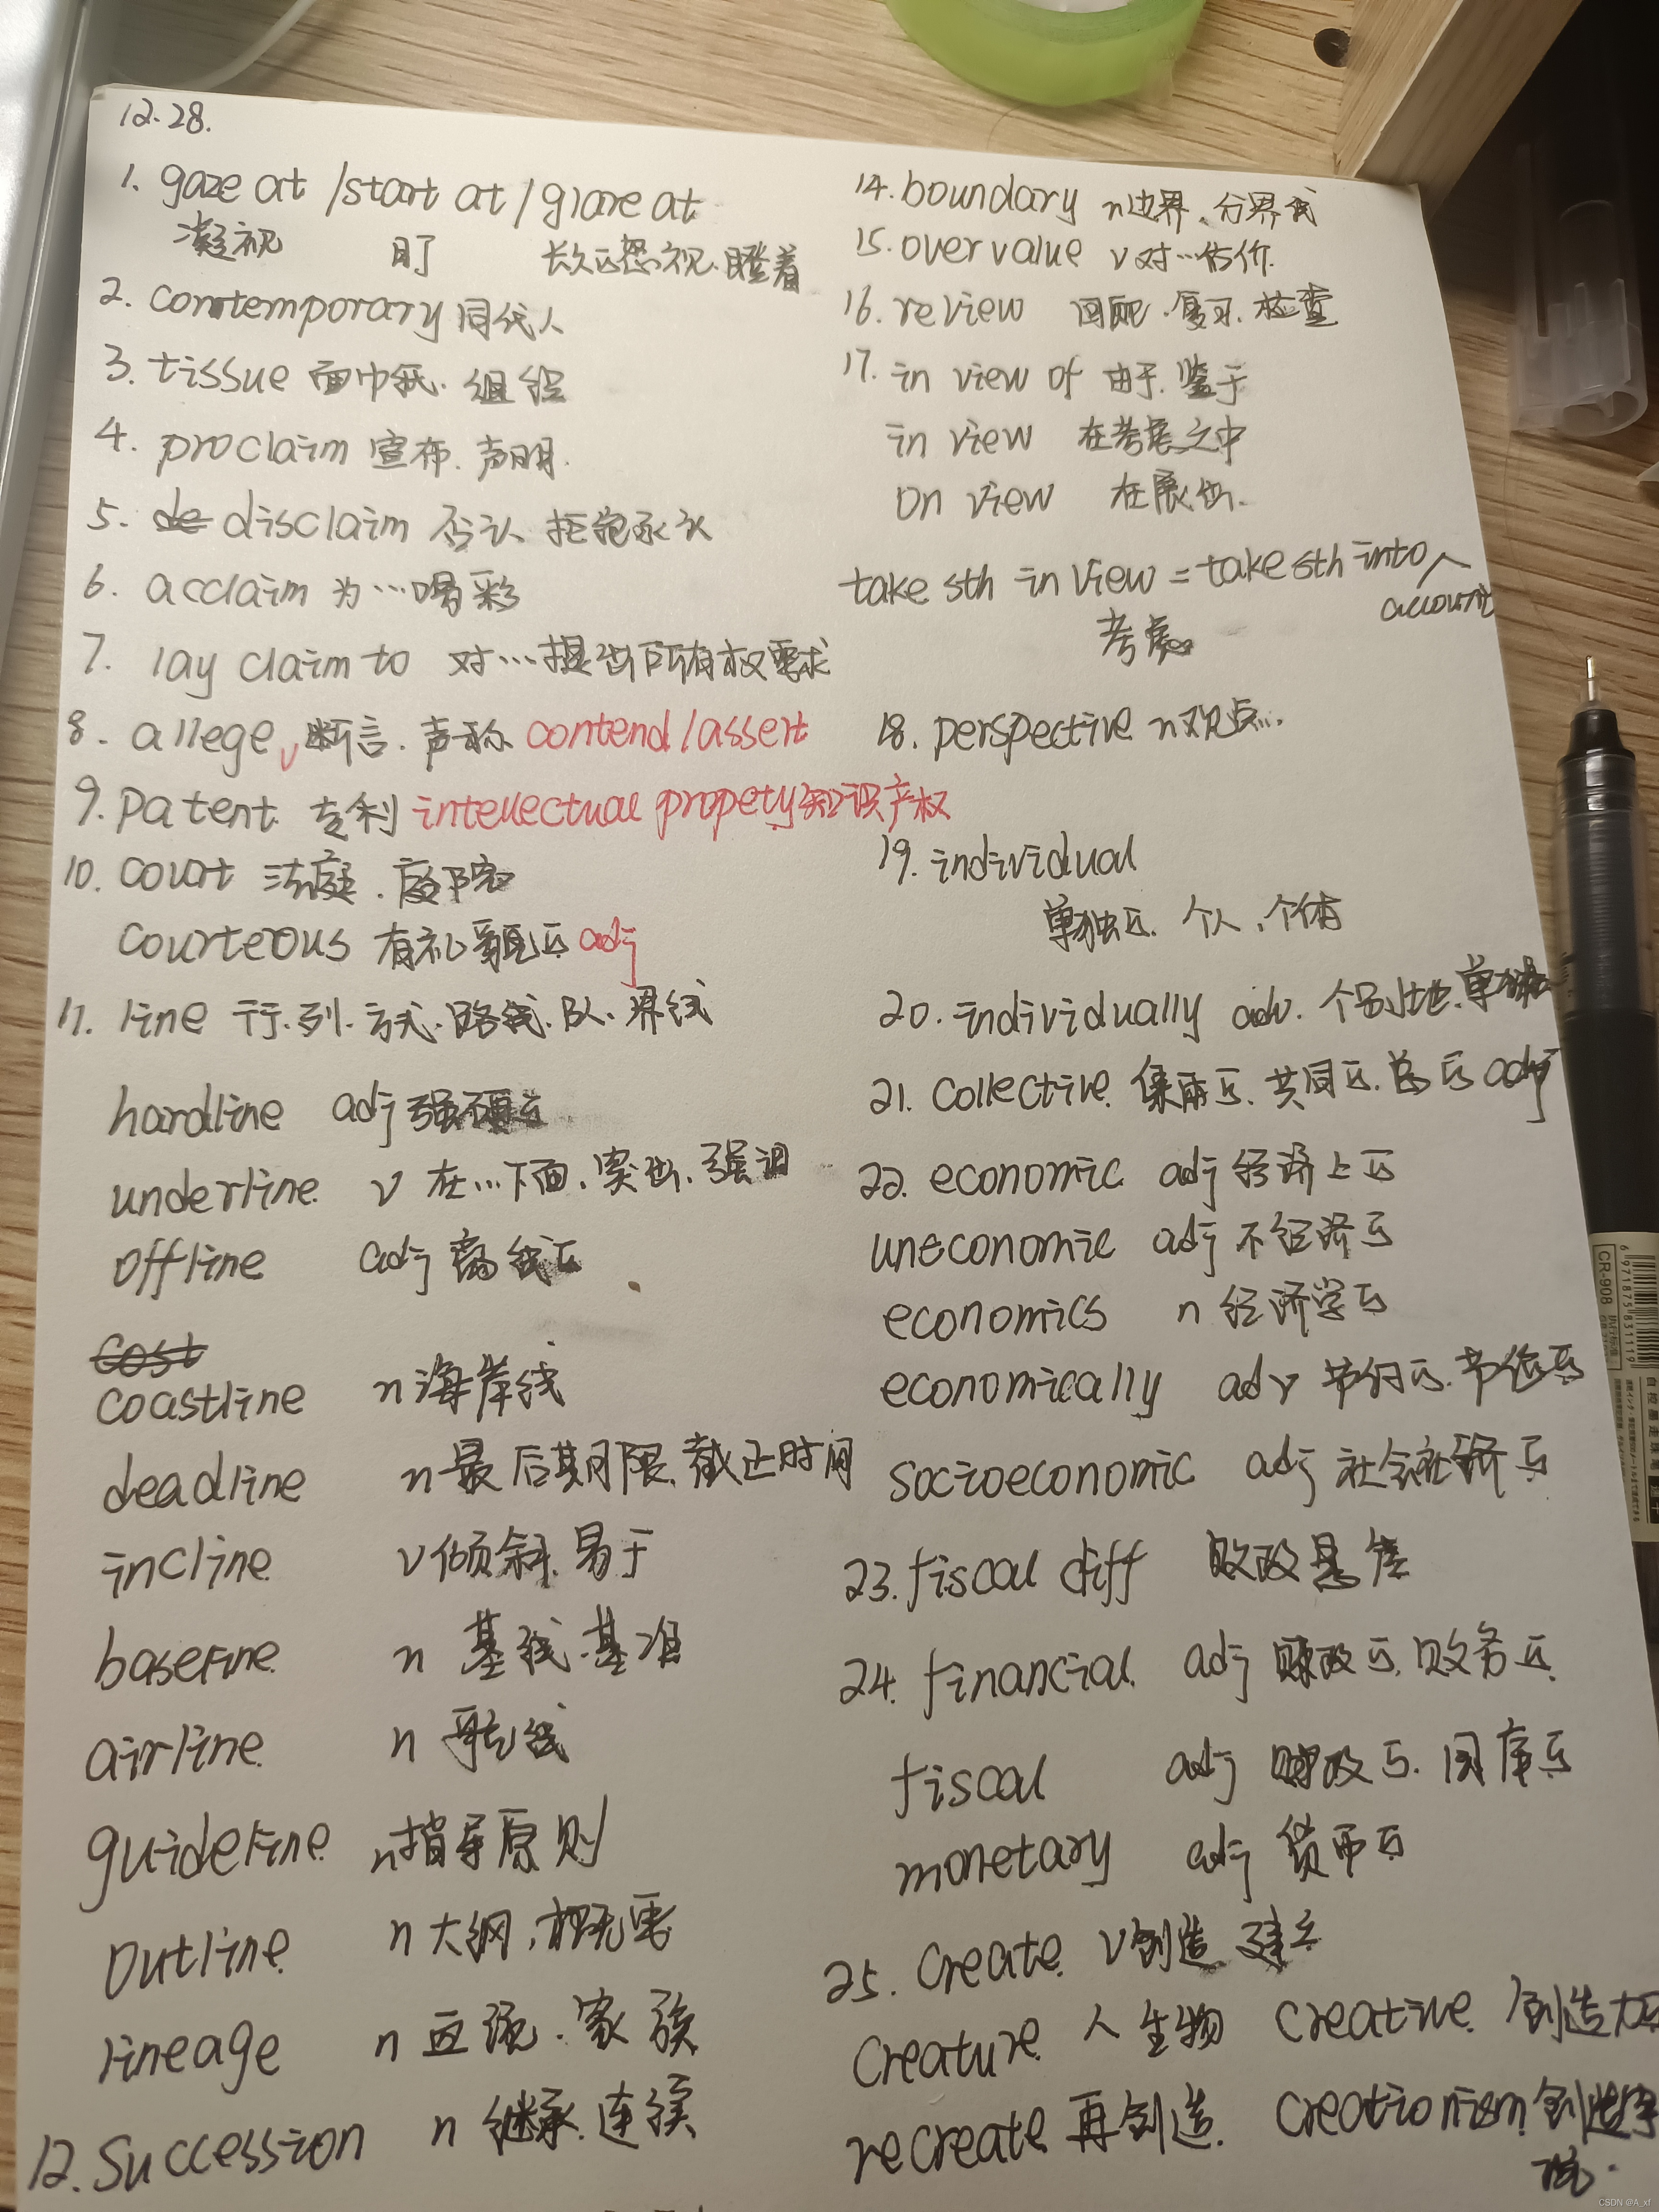 12.28.
1. gaze at /start at / glare at
凝视 盯 长久怒视、瞪着
2. contemporary 同代人
3. tissue 面巾纸. 组织
4. proclaim 宣布. 声明.
5. de disclaim 否认 拒绝承认
6. acclaim 为…喝彩
7. lay claim to 对…提出所有权要求
8. allege v 断言. 声称 contend / assert
9. patent 专利 intellectual propety 知识产权
10. court 法庭. 庭院
courteous 有礼貌的 adj
11. line 行.列.方式.路线.队.界线
hardline adj 强硬的
underline v 在…下面. 突出. 强调
offline adj 离线的
cost
coastline n 海岸线
deadline n 最后期限. 截止时间
incline v 倾斜. 易于
baseline n 基线.基准
airline n 航线
guideline n 指导原则
outline n 大纲, 概要
lineage n 血统. 家族
12. Succession n 继承. 连续
14. boundary n 边界、分界线
15. overvalue v 对…估价.
16. review 回顾. 复习. 检查
17. in view of 由于. 鉴于
in view 在考虑之中
on view 在展出.
take sth in view = take sth into
account
考虑
18. perspective n 观点..
19. individual
单独的. 个人, 个体
20. individually adv. 个别地. 单独地
21. collective 集体的. 共同的. 总的 adj
22. economic adj 经济上的
uneconomic adj 不经济的
economics n 经济学的
economically adv 节约的. 节俭的
socioeconomic adj 社会经济的
23. fiscal diff 财政悬崖
24. financial adj 财政的. 财务的
fiscal adj 财政的. 国库的
monetary adj 货币的
25. create v 创造 建立
creature 人 生物 creative 创造力的
recreate 再创造. creationism 创造学
说.
CR-908
6971875831119
CSDN @A_xf